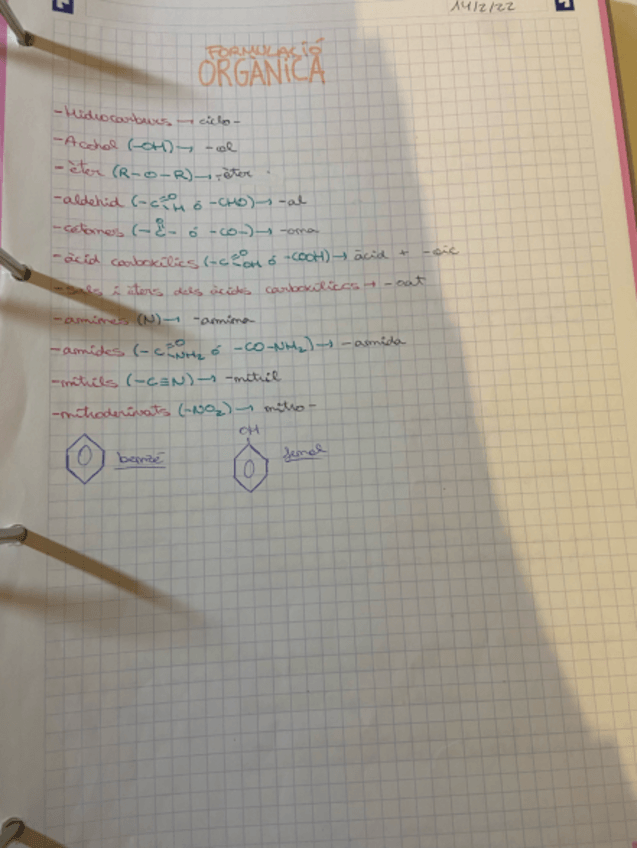 14/2/22
FORMULACIÓ
ORGÀNICA
-Hidrocarburs → ciclo-
-Alcohol (-OH) → -ol
-èter (R-O-R) → -èter
-aldehid (-C=O H ó -CHO) → -al
-cetones (-C=O- ó -CO-) → -ona
-àcid carboxílics (-C=O OH ó -COOH) → àcid + -oic
-sals i èters dels àcids carboxílics → -oat
-amines (N) → -amina
-amides (-C=O NH2 ó -CO-NH2) → -amida
-nitrils (-C≡N) → -nitril
-nitroderivats (-NO2) → nitro-
OH
benzè fenol